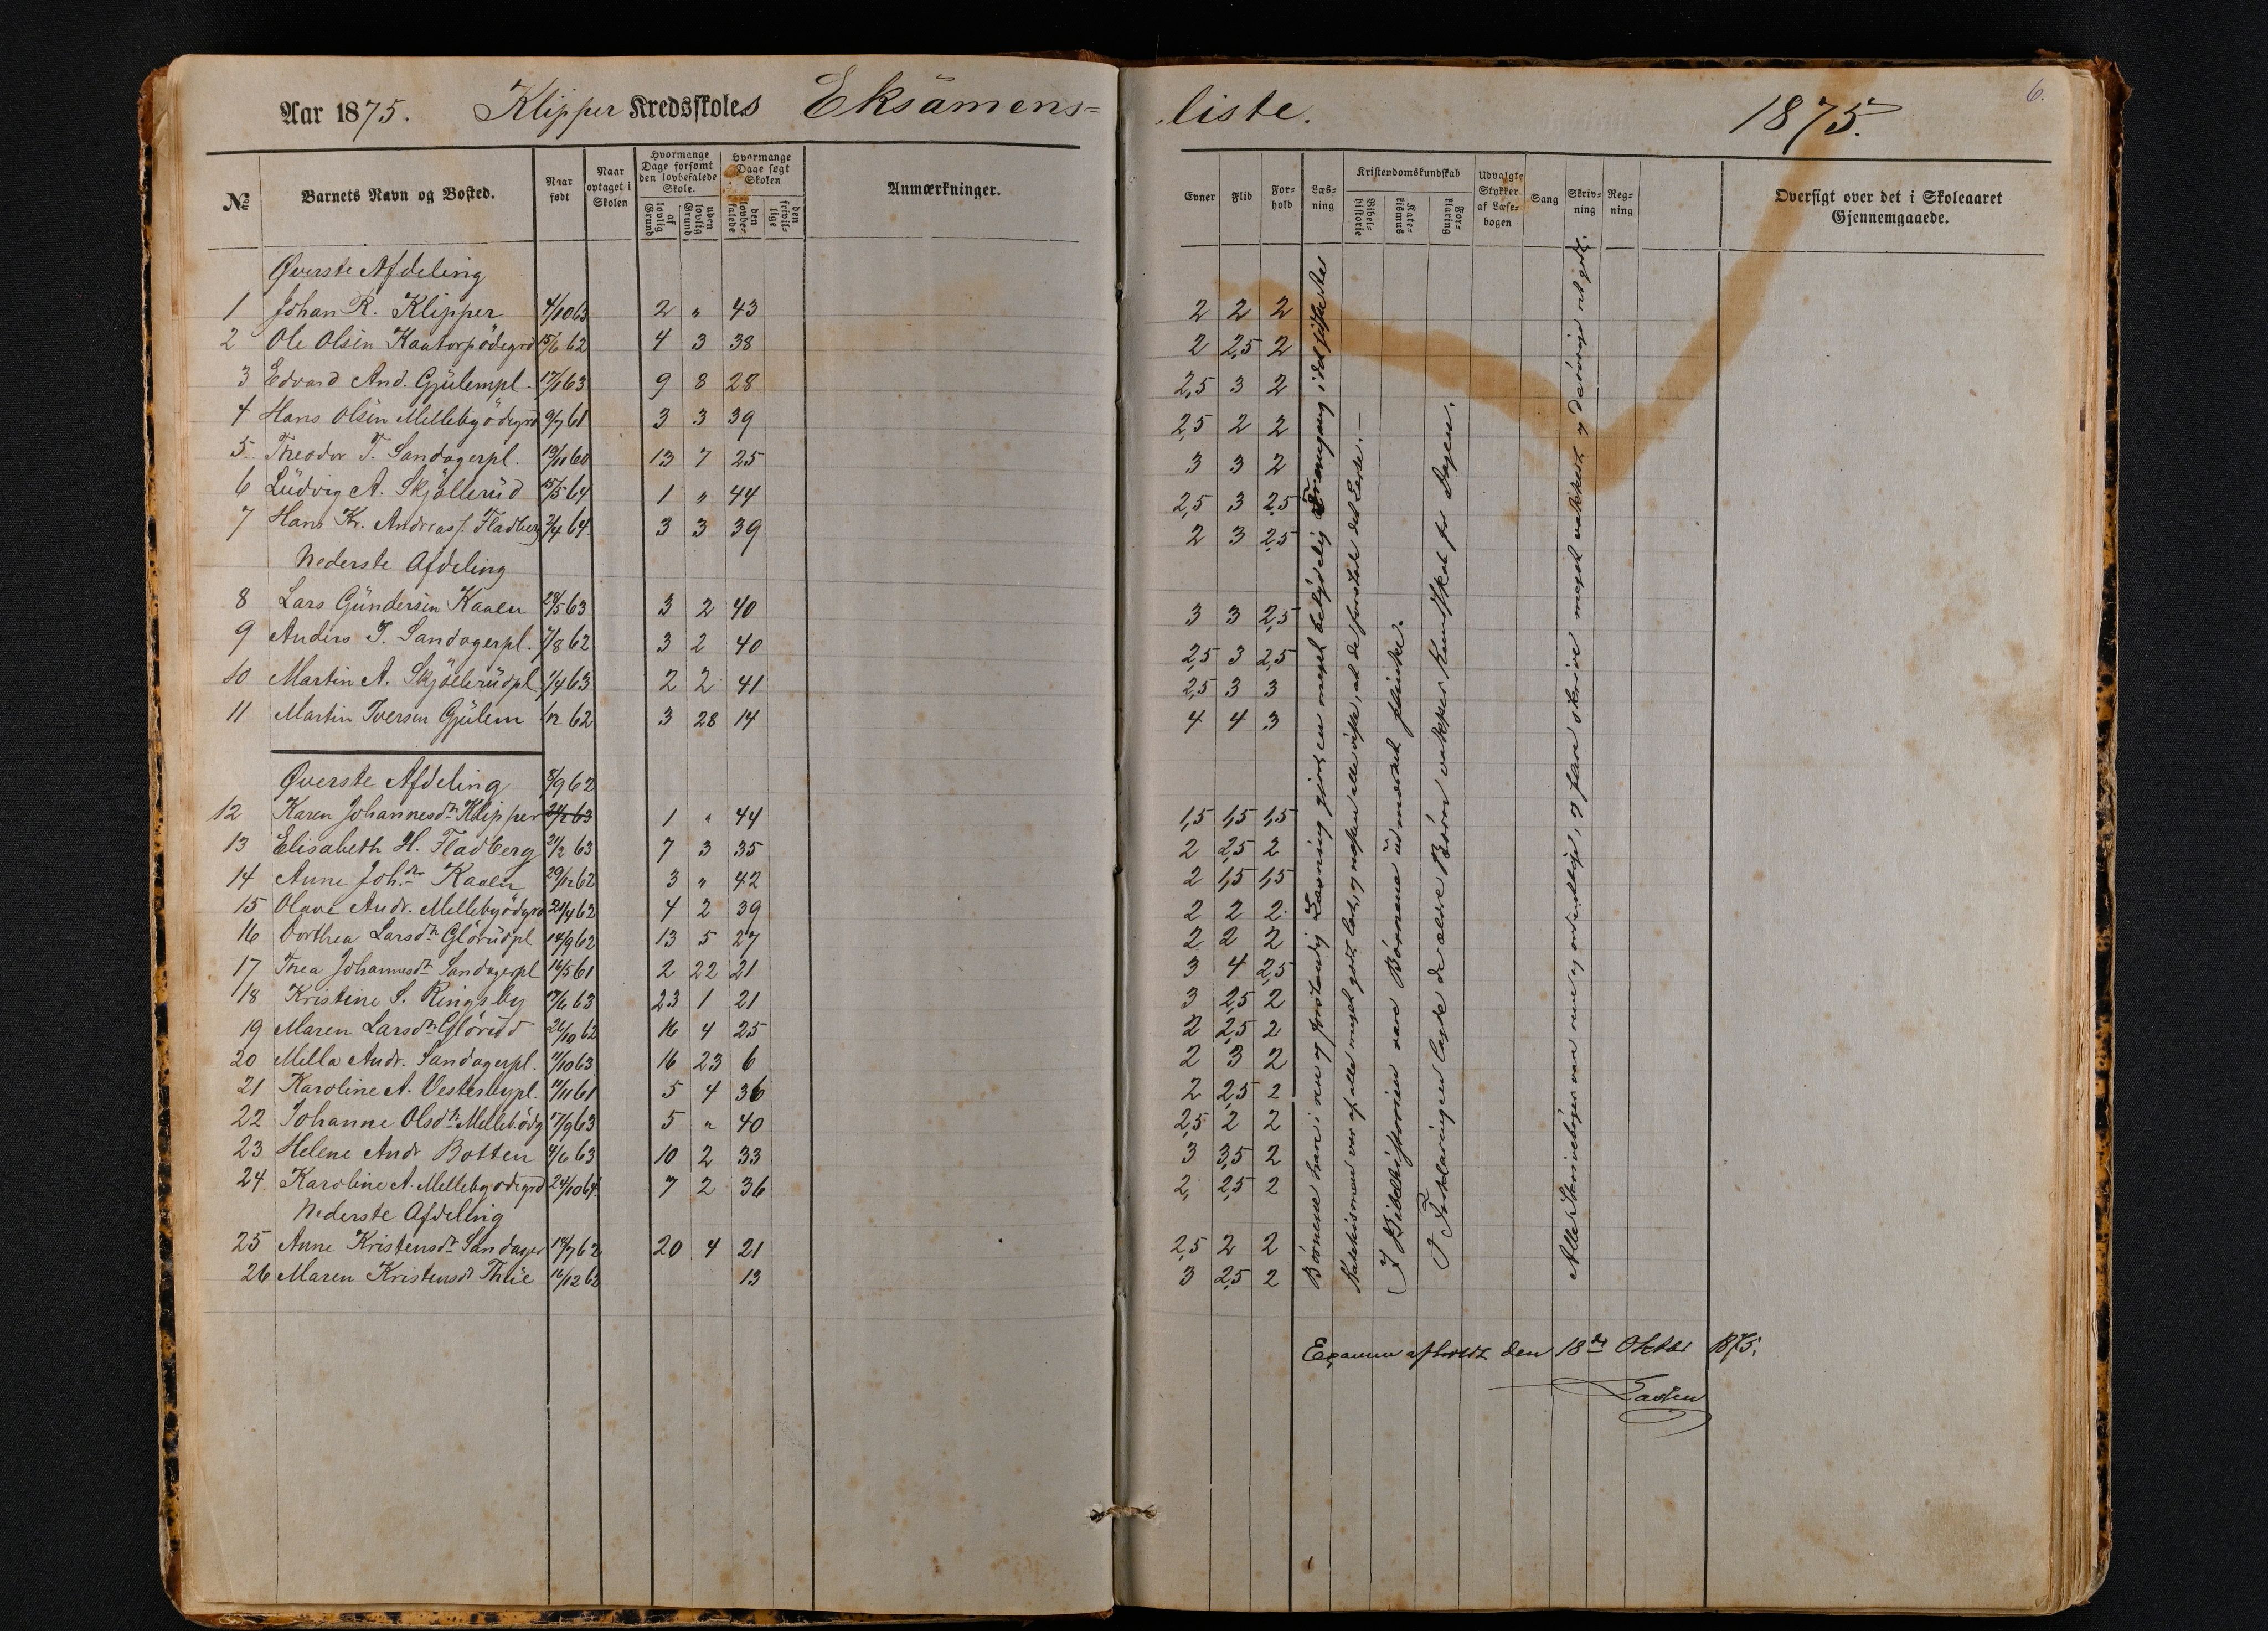 Aar 1875. Klipper Kredsskoles Eksamens=
liste. 1875. 6.
№ Barnets Navn og Bosted. Naar født Naar optaget i Skolen Hvormange Dage forsømt den lovbefalede Skole. af lovlig Grund uden lovlig Grund Hvormange Dage søgt Skolen den lovbefalede den frivillige Anmærkninger.
Evner Flid Forhold Læsning Kristendomskundskab Bibelhistorie Katekismus Forklaring Udvalgte Stykker af Læsebogen Sang Skrivning Regning Oversigt over det i Skoleaaret Gjennemgaaede.
Øverste Afdeling
1 Johan R. Klipper 4/10 63 2 " 43 2 2 2
2 Ole Olsen Kaatorpödegrd 15/6 62 4 3 38 2 2,5 2
3 Edvard And. Gjulempl. 17/1 63 9 8 28 2,5 3 2
4 Hans Olsen Mellebyödegrd 9/7 61 3 3 39 2,5 2 2
5 Theodor T. Sandagerpl. 19/11 60 13 7 25 3 3 2
6 Ludvig A. Skjöllerud 15/5 64 1 " 44 2,5 3 2,5
7 Hans Kr. Andreass. Fladberg 2/4 64. 3 3 39 2 3 2,5
Nederste Afdeling
8 Lars Gundersen Kaalen 28/5 63 3 2 40 3 3 2,5
9 Anders T. Sandagerpl. 7/8 62 3 2 40 2,5 3 2,5
10 Martin A. Skjöllerudpl 7/4 63 2 2 41 2,5 3 3
11 Martin Iversen Gjulem 1/12 62 3 28 14 4 4 3
Øverste Afdeling 8/9 62
12 Karen Johannesdr Klipper 24/2 63 1 " 44 1,5 1,5 1,5
13 Elisabeth H. Fladberg 21/2 63 7 3 35 2 2,5 2
14 Anne Joh.dr Kaalen 29/12 62 3 " 42 2 1,5 1,5
15 Olave Andr. Mellebyödgrd 21/4 62 4 2 39 2 2 2
16 Dorthea Larsdr Glörudpl 14/9 62 13 5 27 2 2 2
17 Thea Johannesdr Sandagerpl 16/5 61 2 22 21 3 4 2,5
18 Kristine S. Ringsby 17/6 63 23 1 21 3 2,5 2
19 Maren Larsdr Glörud 26/10 62 16 4 25 2 2,5 2
20 Mella Andr. Sandagerpl. 11/10 63 16 23 6 2 3 2
21 Karoline A. Vestersbypl. 11/11 61 5 4 36 2 2,5 2
22 Johanne Olsdr Mellebödg 17/9 63 5 " 40 2,5 2 2
23 Helene Andr Botten 4/6 63 10 2 33 3 3,5 2
24 Karoline A. Mellebyodegrd 24/10 64 7 2 36 2, 2,5 2
Nederste Afdeling
25 Anne Kristensdr Sandager 18/7 62 20 4 21 2,5 2 2
26 Maren Kristensdr Thue 16/12 62 13 3 2,5 2
Börnene have i ren og forstandig Læsning gjort en meget betydelig Fremgang i det sidste Aar
Katekismen var af alle meget godt lært, og næsten alle viste, at de forstode det Lærte.—
I Bibelhistorien vare Börnene udmærket flinke.
I Forklaringen lagde de ældre Börn vakker Kundskab for Dagen.
Alle Skriveböger var rene og ordentlige, og flere skrive meget vakkert og deövrige ret godt.
Examen afholdt den 18de Oktbr 1875.